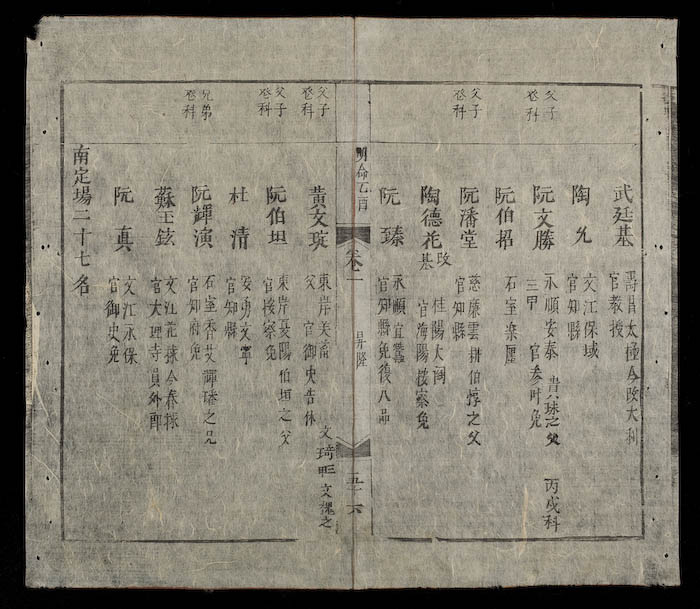 武廷基
壽昌太撞今改大利
官教授
陶允
文江保域
官知縣
父子
登科
阮文勝
永順安泰 貴珠之父 丙戌科
三甲 官參叶免
阮伯招
石室
父子
登科
阮潘堂
慈廉雲耕伯惇之父
官知縣
陶德花改基
桂陽大
官海陽按察免
阮臻
永順宜蠶
官知縣免後八品
明命乙酉
卷一
昇隆
五
六
父子
登科
黃文琔
東岸美 文琦 文櫆之
父 官御史告休
父子
登科
阮伯坦
東岸 陽伯垣之父
官按察免
杜清
安勇文寧
官知縣
兄弟
登科
阮輝演
石室香艾輝璘之兄
官知府免
蘇玉鉉
文江 今春
官大理寺員外郎
阮真
文江永保
官御史免
南定場二十七名